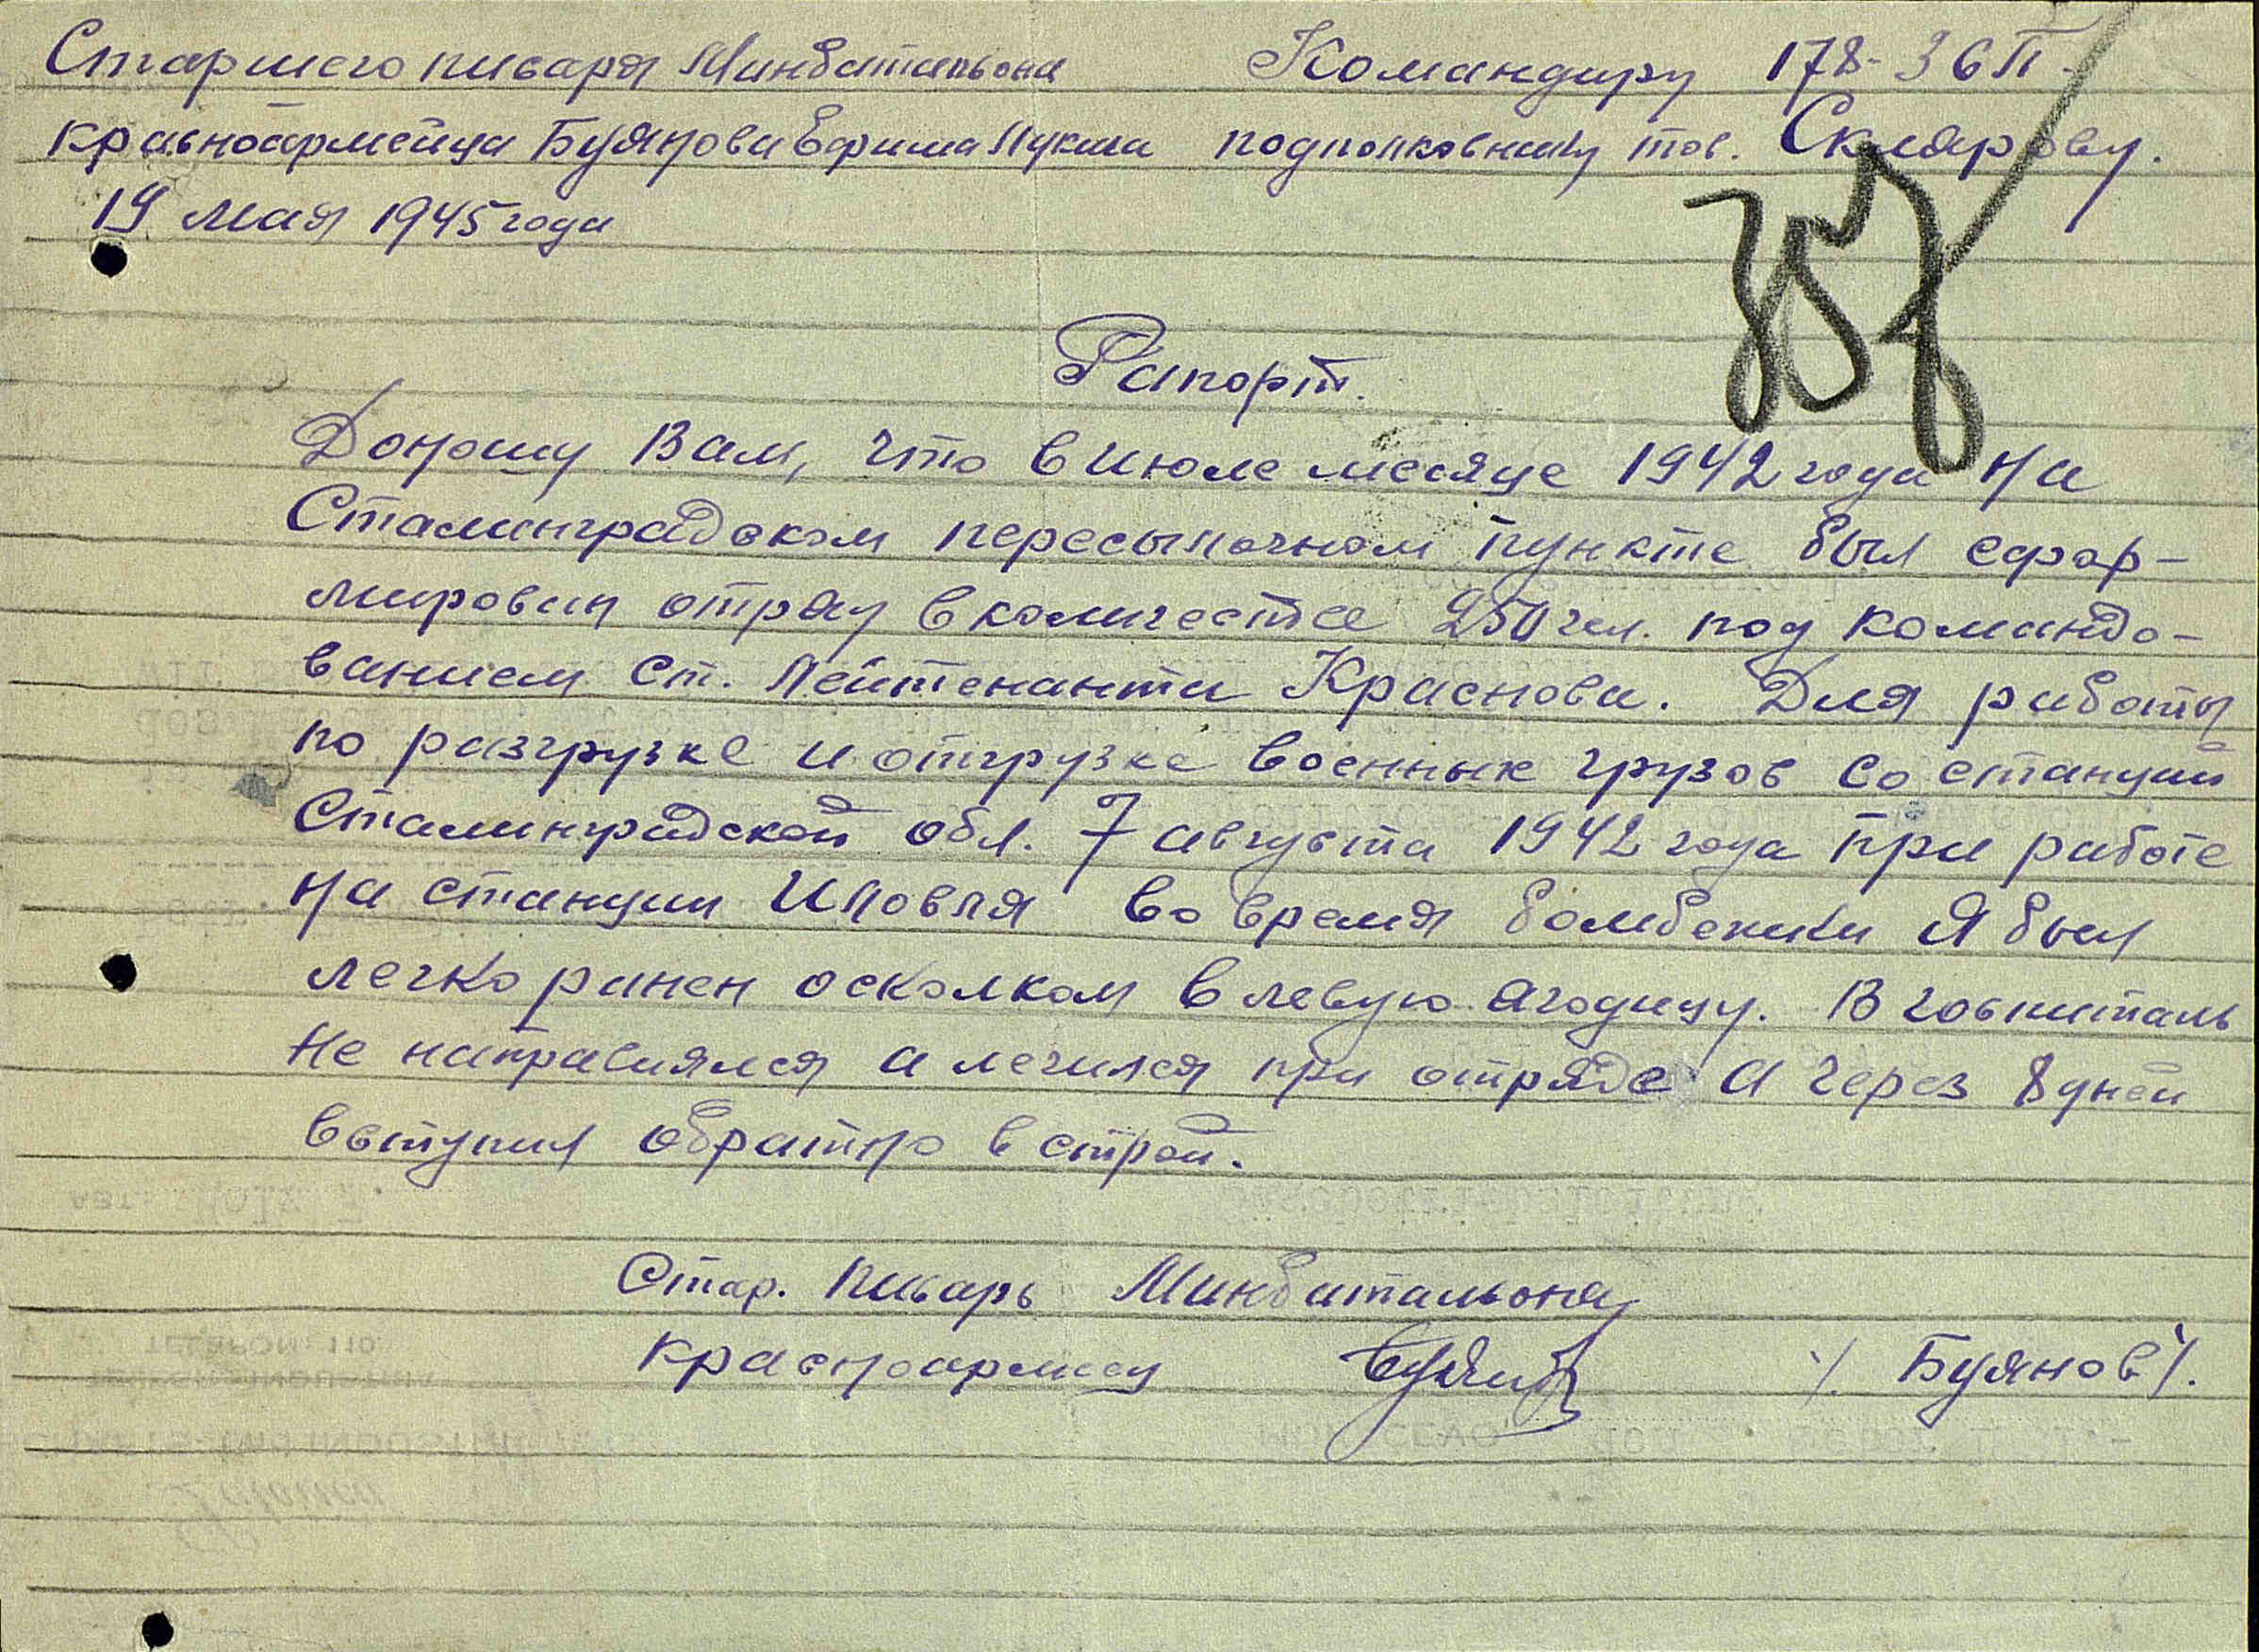 Старшего писаря Минбатальона Командиру 178-ЗСП.
красноармейца Буянова Ефима Лукича подполковнику тов. Склярову.
19 мая 1945 года
357
Рапорт.
Доношу Вам, что в июле месяце 1942 года на
Сталинградском пересылочном пункте был сфор-
мирован отряд в количестве 250 чел. под командо-
ванием ст. лейтенанта Краснова. Для работы
по разгрузке и отгрузке военных грузов со станций
Сталинградской обл. 7 августа 1942 года при работе
на станции Иловля во время бомбежки я был
легко ранен осколком в левую ягодицу. В госпиталь
не направлялся а лечился при отряде а через 8 дней
вступил обратно в строй.
Стар. писарь Минбатальона
красноармеец /. Буянов /.